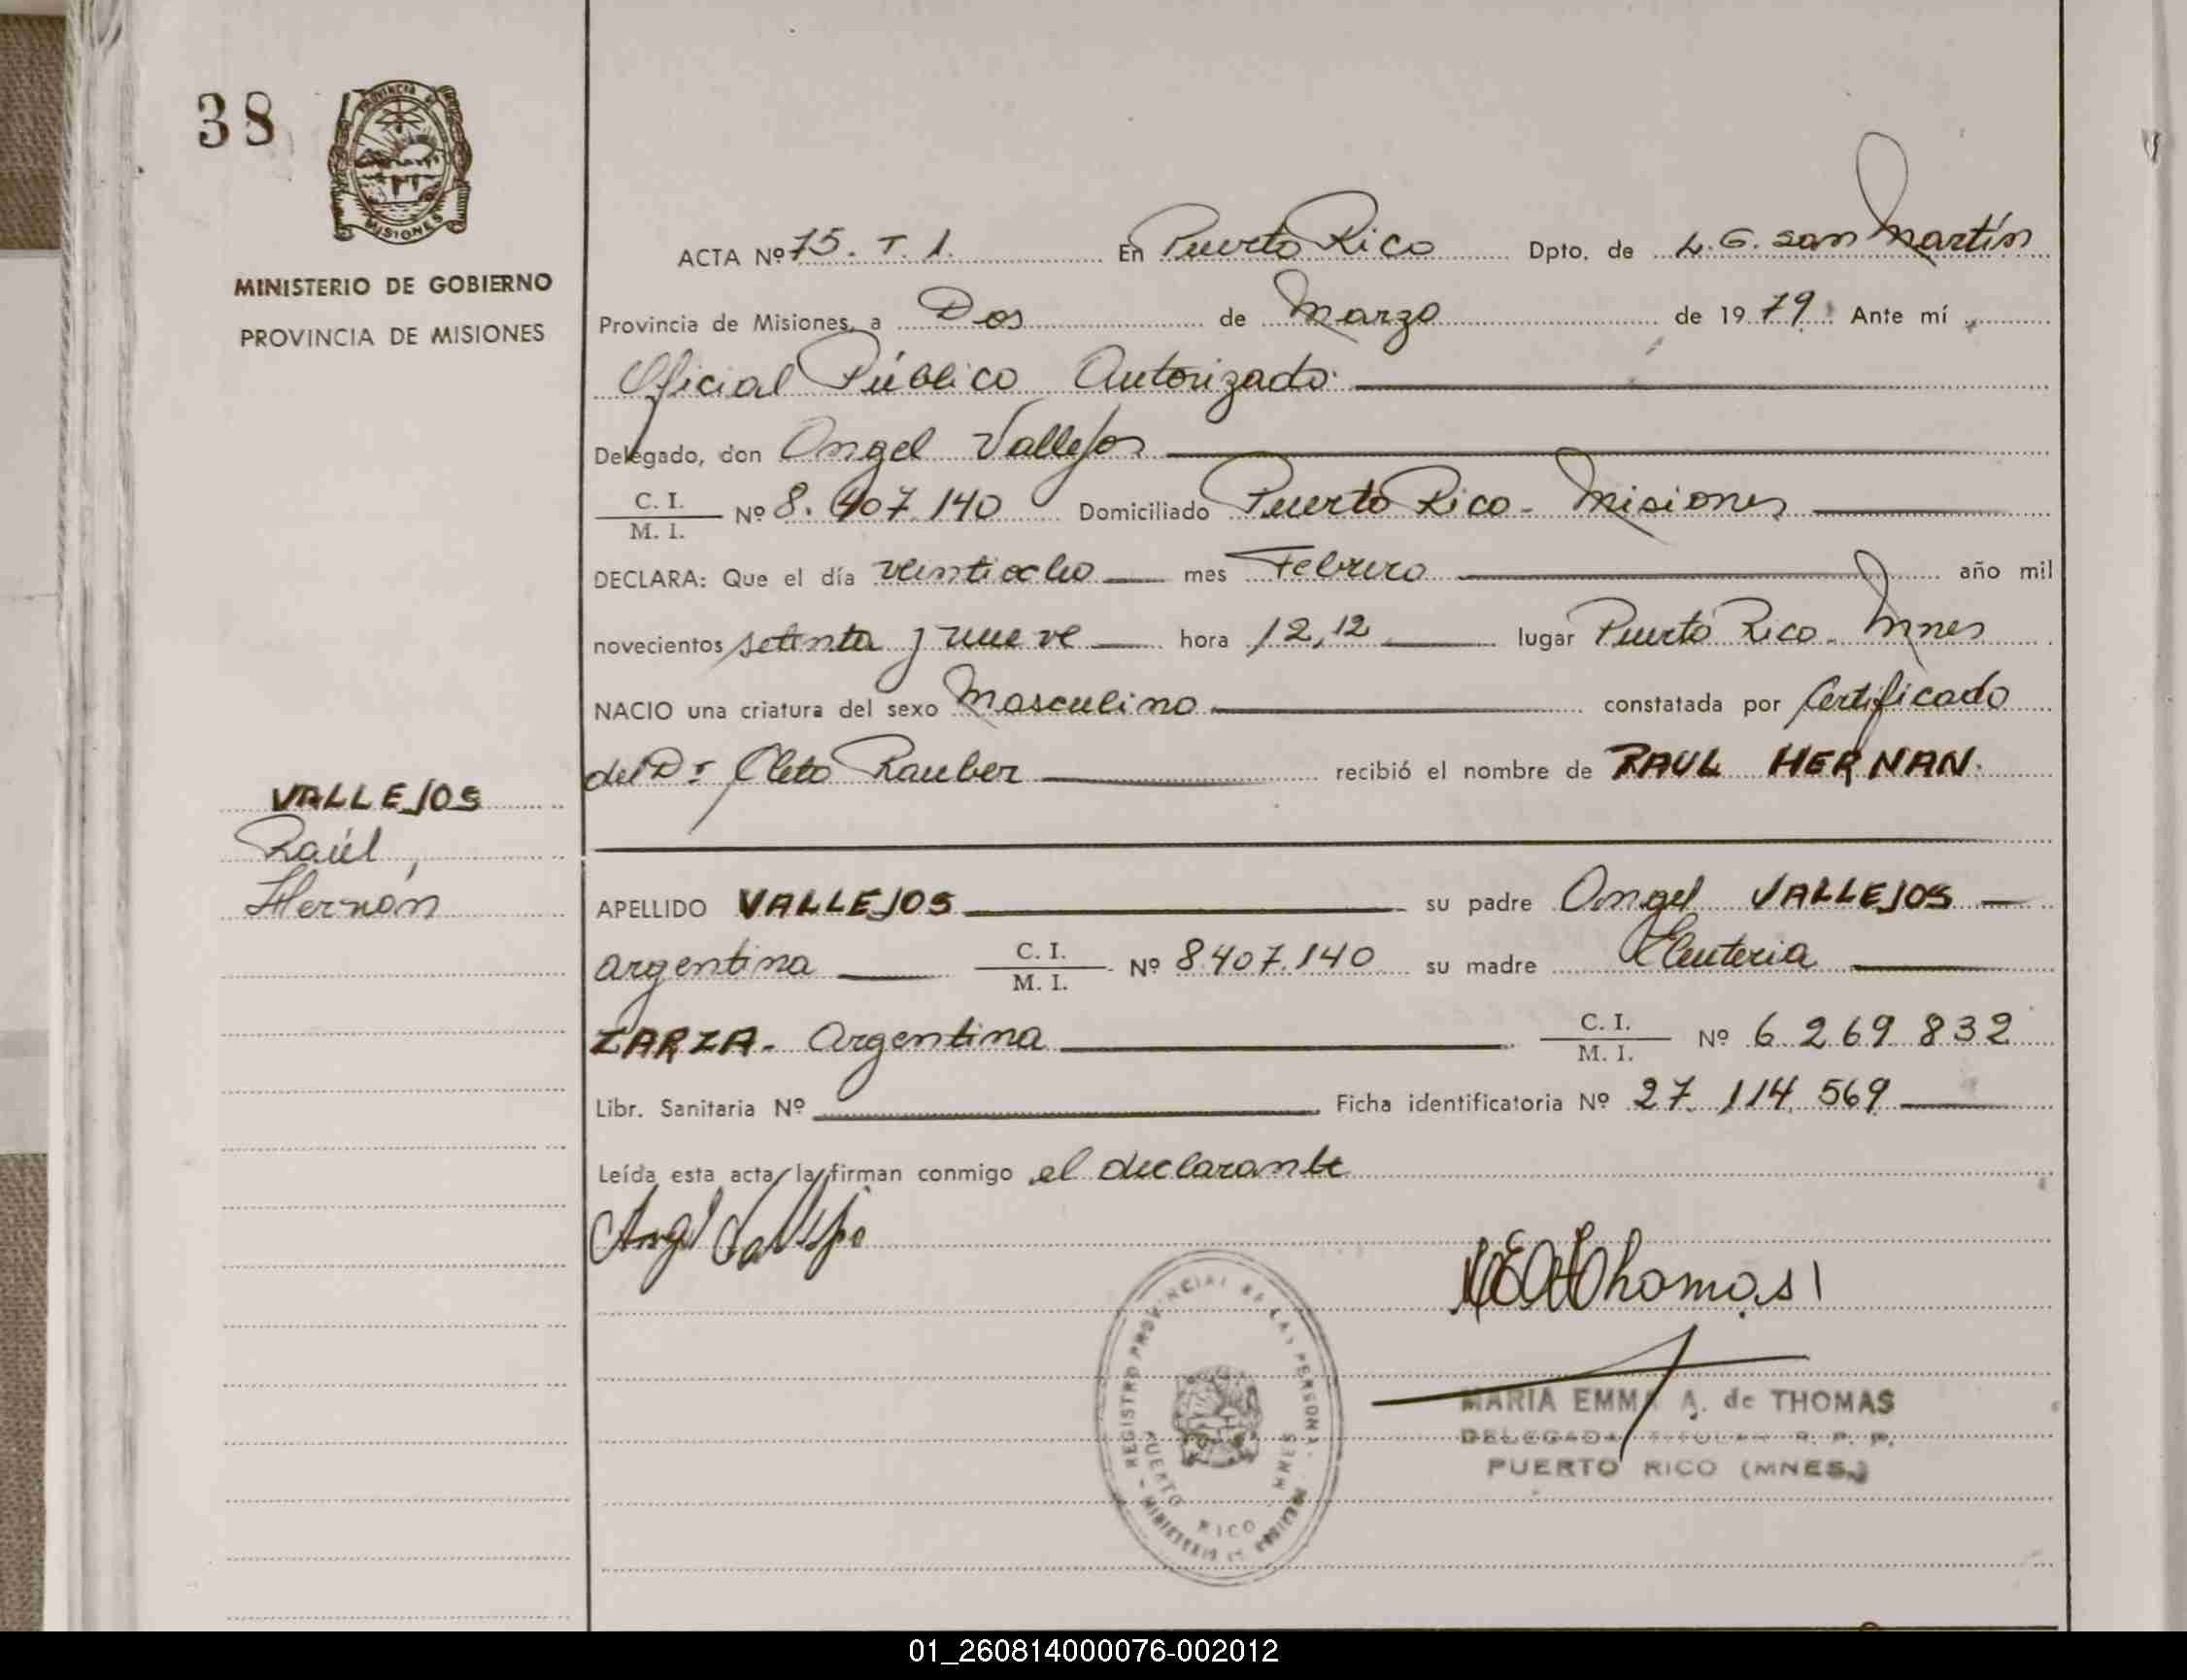 38
PROVINCIA DE
MISIONES
MINISTERIO DE GOBIERNO
PROVINCIA DE MISIONES
VALLEJOS
Raúl,
Hernán
ACTA Nº 75. T. 1. En Puerto Rico Dpto. de L. G. San Martín
Provincia de Misiones, a Dos de Marzo de 1979 Ante mí
Oficial Público Autorizado
Delegado, don Angel Vallejos
C. I. / M. I. Nº 8.407.140 Domiciliado Puerto Rico - Misiones
DECLARA: Que el día veintiocho mes Febrero año mil
novecientos setenta y nueve hora 12,12 lugar Puerto Rico - Mnes
NACIO una criatura del sexo Masculino constatada por Certificado
del Dr Cleto Rauber recibió el nombre de RAUL HERNAN.
APELLIDO VALLEJOS su padre Angel VALLEJOS
argentina C. I. / M. I. Nº 8.407.140 su madre Eleuteria
ZARZA - Argentina C. I. / M. I. Nº 6 269 832
Libr. Sanitaria Nº Ficha identificatoria Nº 27.114.569
Leída esta acta, la firman conmigo el declarante
Angel Vallejo
Thomas
REGISTRO PROVINCIAL DE LAS PERSONAS
PUERTO RICO MNES
MARIA EMMA A. de THOMAS
DELEGADA TITULAR R. P. P.
PUERTO RICO (MNES.)
01_260814000076-002012